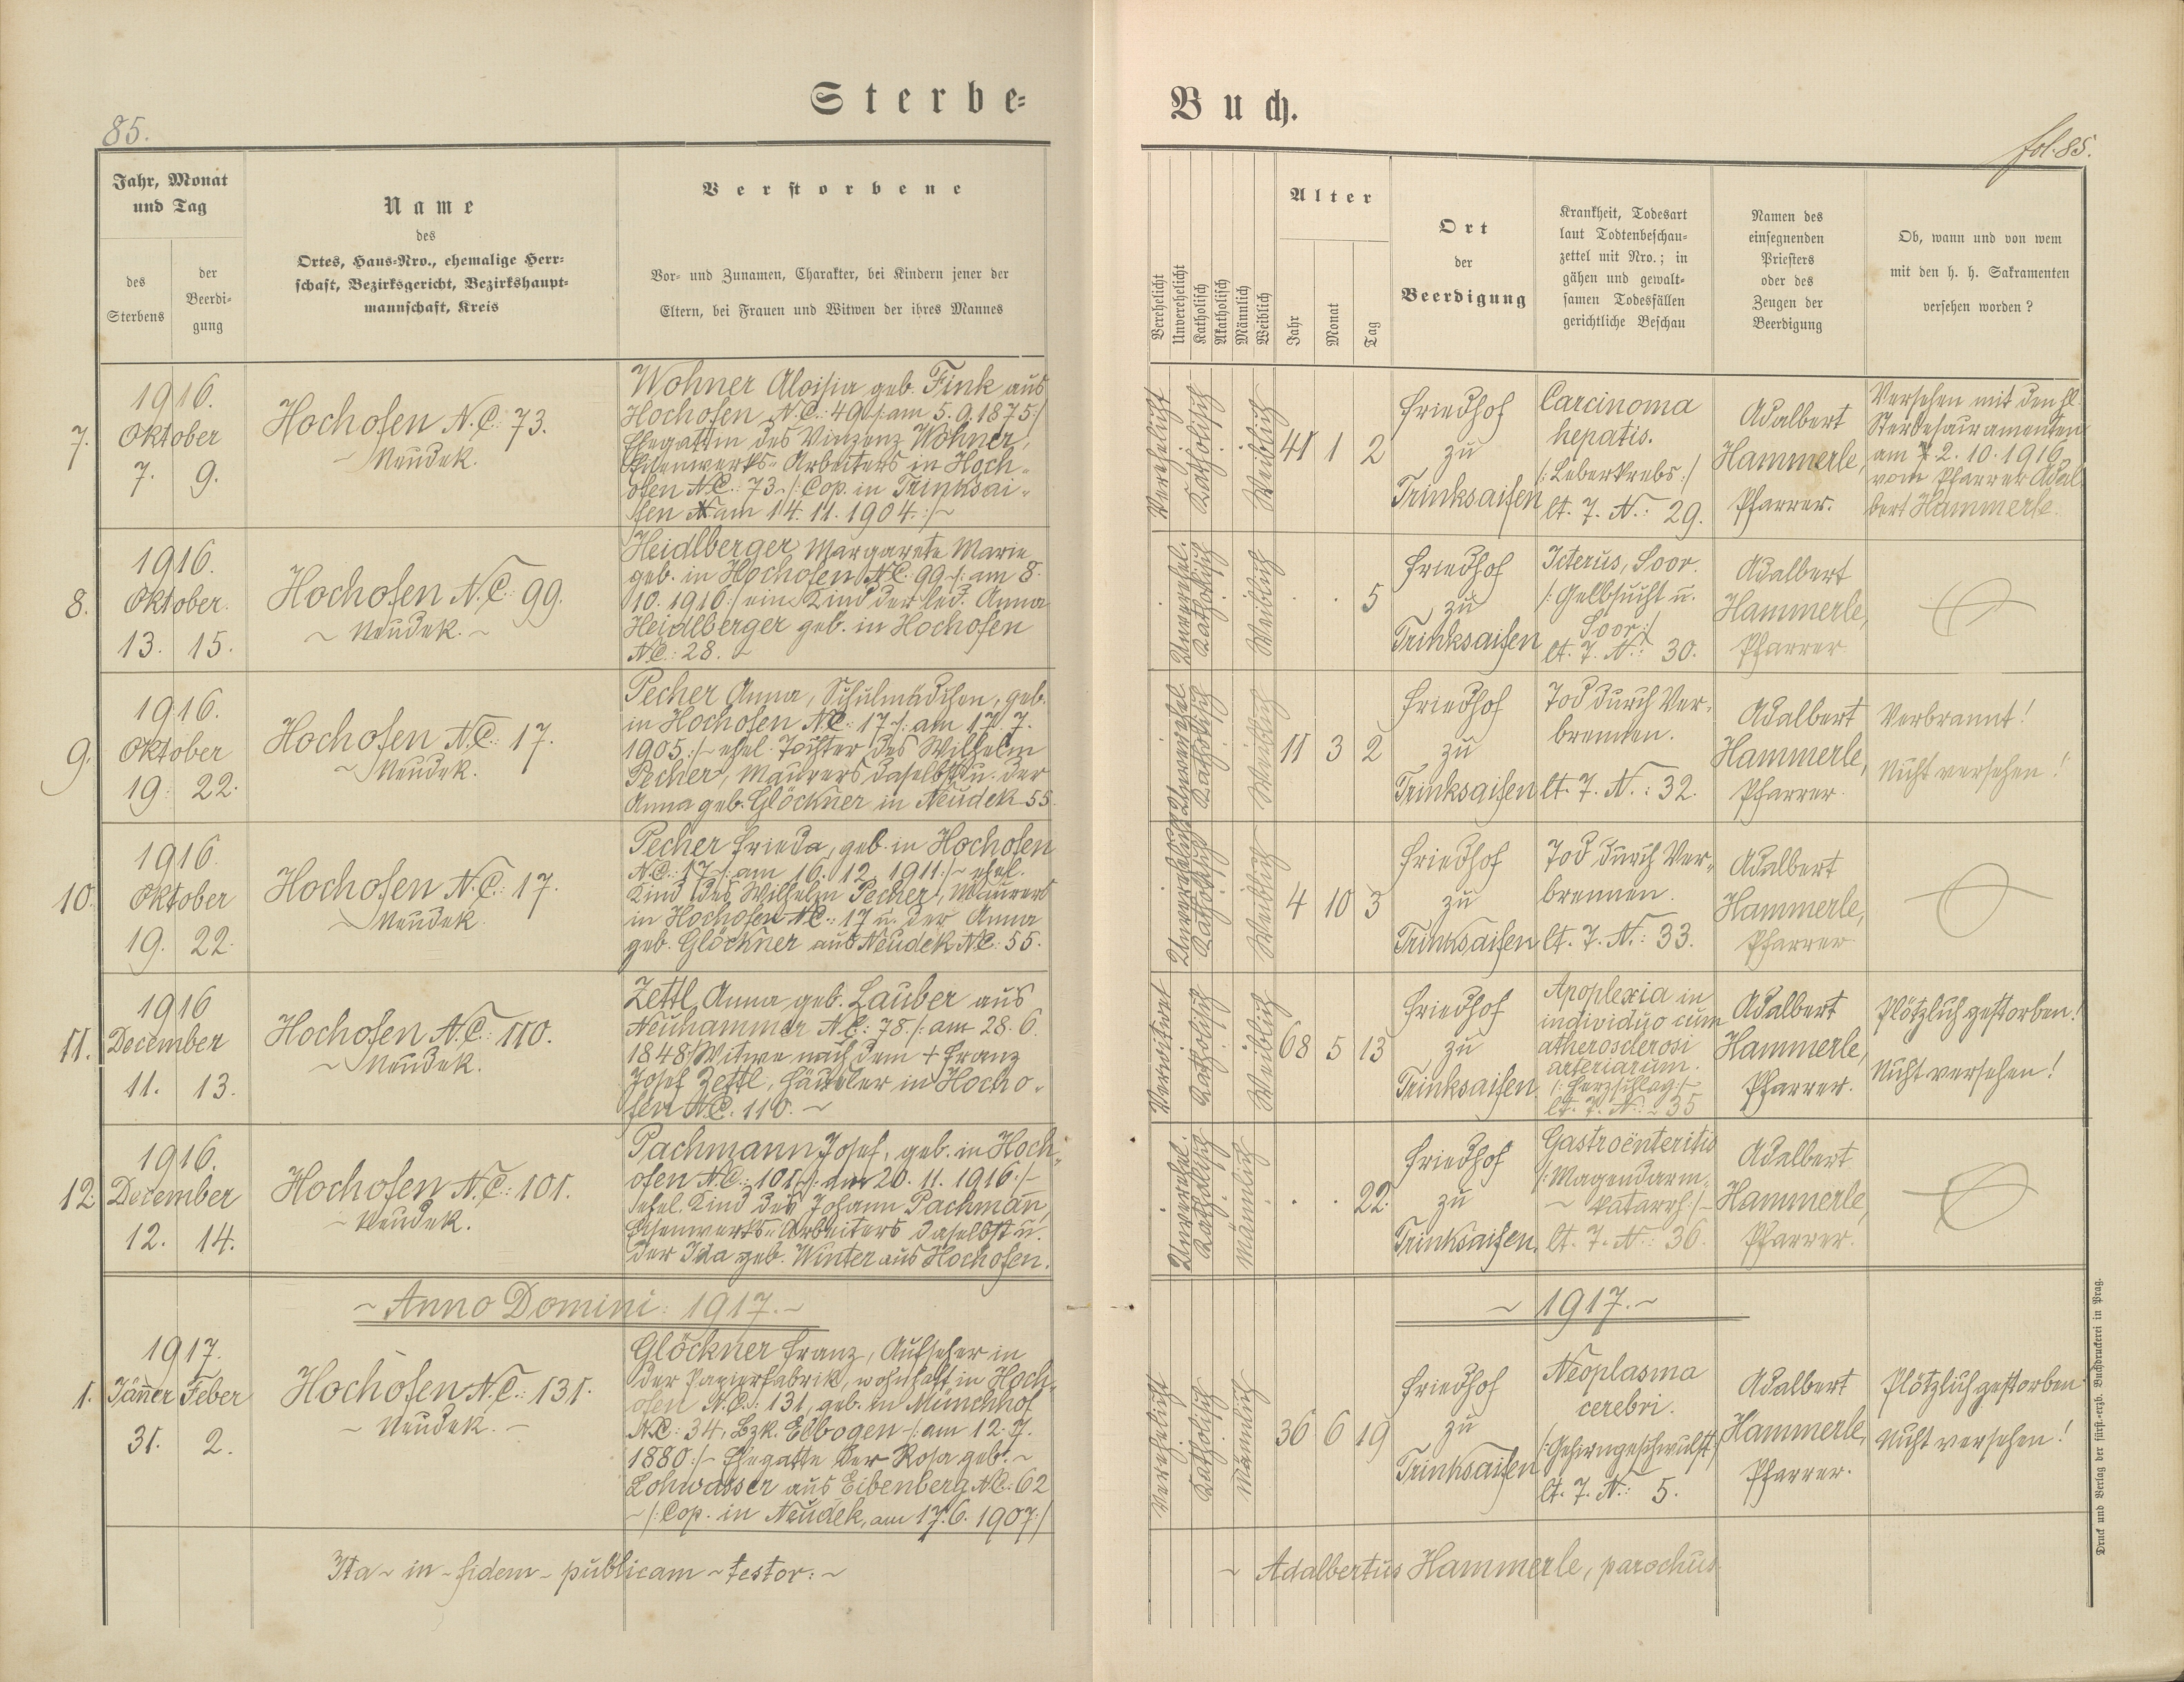 Sterbe-
85.
Jahr, Monat
und Tag
des
Sterbens
der
Beerdi-
gung
Name
des
Ortes, Haus-Nro., ehemalige Herr-
schaft, Bezirksgericht, Bezirkshaupt-
mannschaft, Kreis
Verstorbene
Vor- und Zunamen, Charakter, bei Kindern jener der
Eltern, bei Frauen und Witwen der ihres Mannes
7.
1916.
Oktober
7. 9.
Hochofen N.C. 73.
~ Neudek.
Wohner Aloisia geb. Fink aus
Hochofen N.C.: 49 /: am 5. 9. 1875 :/
Ehegattin des Vinzenz Wohner,
Eisenwerks-Arbeiters in Hoch-
ofen N.C.: 73 - /: Cop. in Trinksai-
fen am 14. 11. 1904. :/~
8.
1916.
Oktober.
13. 15.
Hochofen N.C.: 99.
~ Neudek. ~
Heidlberger Margarete Marie
geb. in Hochofen N.C.: 99 /: am 8.
10. 1916 :/ ein Kind der led. Anna
Heidlberger geb. in Hochofen
N.C.: 28. ~
9.
1916.
Oktober
19. 22.
Hochofen N.C.: 17.
~ Neudek.
Pecher Anna, Schulmädchen, geb.
in Hochofen N.C.: 17 /: am 17. 7.
1905. :/~ ehel. Tochter des Wilhelm
Pecher, Maurers daselbst u. der
Anna geb. Glöckner in Neudek 55.
10.
1916.
Oktober
19. 22.
Hochofen N.C.: 17.
~ Neudek.
Pecher Frieda, geb. in Hochofen
N.C.: 17 /: am 16. 12. 1911 :/~ ehel.
Kind des Wilhelm Pecher, Maurers
in Hochofen N.C.: 17 u. der Anna
geb. Glöckner aus Neudek N.C.: 55.
11.
1916
December
11. 13.
Hochofen N.C.: 110.
~ Neudek.
Zettl Anna geb. Lauber aus
Neuhammer N.C.: 78. /: am 28. 6.
1848 :/ Witwe nach dem + Franz
Josef Zettl, Häusler in Hocho-
fen N.C. 110. ~
12.
1916.
December
12. 14.
Hochofen N.C.: 101.
~ Neudek.
Pachmann Josef, geb. in Hoch-
ofen N.C.: 101 /: am 20. 11. 1916 :/-
ehel. Kind des Johann Pachmann,
Eisenwerks-Arbeiters daselbst u.
der Ida geb. Winter aus Hochofen.
~ Anno Domini: 1917. ~
1.
1917.
Jänner Feber
31. 2.
Hochofen N.C.: 131.
~ Neudek. -
Glöckner Franz, Aufseher in
der Papierfabrik, wohnhaft in Hoch-
ofen N.C.: 131, geb. in Münchhof
N.C.: 34, Bzk. Elbogen - /: am 12. 7.
1880 :/- Ehegatte der Rosa geb. ~
Lohwasser aus Eibenberg N.C.: 62
- /: Cop. in Neudek, am 17. 6. 1907 :/
Ita ~ in - fidem - publicam ~ testor: ~
Buch.
fol. 85.
Verehelicht
Unverehelicht
Katholisch
Akatholisch
Männlich
Weiblich
Alter
Jahr
Monat
Tag
Ort
der
Beerdigung
Krankheit, Todesart
laut Todtenbeschau-
zettel mit Nro.; in
gähen und gewalt-
samen Todesfällen
gerichtliche Beschau
Namen des
einsegnenden
Priesters
oder des
Zeugen der
Beerdigung
Ob, wann und von wem
mit den h. h. Sakramenten
versehen worden?
Verehelicht
Katholisch
Weiblich
41 1 2
Friedhof
zu
Trinksaifen
Carcinoma
hepatis.
/: Leberkrebs :/
lt. T. N.: 29.
Adalbert
Hammerle,
Pfarrer.
Versehen mit den hl.
Sterbesakramenten
am 2. 10. 1916
vom Pfarrer Adal-
bert Hammerle.
Unverehel.
Katholisch
Weiblich
. . 5
Friedhof
zu
Trinksaifen
Icterus, Soor.
/: Gelbsucht u.
Soor :/
lt. T. N.: 30.
Adalbert
Hammerle,
Pfarrer
Unverehel.
Katholisch
Weiblich
11 3 2
Friedhof
zu
Trinksaifen
Tod durch Ver-
brennen.
lt. T. N.: 32.
Adalbert
Hammerle,
Pfarrer.
Verbrannt!
Nicht versehen!
Unverehelicht
Katholisch
Weiblich
4 10 3
Friedhof
zu
Trinksaifen
Tod durch Ver-
brennen.
lt. T. N.: 33.
Adalbert
Hammerle,
Pfarrer
Verwitwet
Katholisch
Weiblich
68 5 13
Friedhof
zu
Trinksaifen
Apoplexia in
individuo cum
atherosclerosi
arteriarum.
/: Herzschlag :/-
lt. T. N.: 35
Adalbert
Hammerle,
Pfarrer.
Plötzlich gestorben!
Nicht versehen!
Unverehel.
Katholisch
Männlich
. . 22.
Friedhof
zu
Trinksaifen.
Gastroënteritis
/: Magendarm-
~ katarrh :/-
lt. T. N.: 36.
Adalbert
Hammerle,
Pfarrer.
~ 1917. ~
Verehelicht
Katholisch
Männlich
36 6 19
Friedhof
zu
Trinksaifen
Neoplasma
cerebri.
/: Gehirngeschwulst :/
lt. T. N.: 5.
Adalbert
Hammerle,
Pfarrer.
Plötzlich gestorben
Nicht versehen!
~ Adalbertus Hammerle, parochus
Druck und Verlag der fürst.-erzb. Buchdruckerei in Prag.